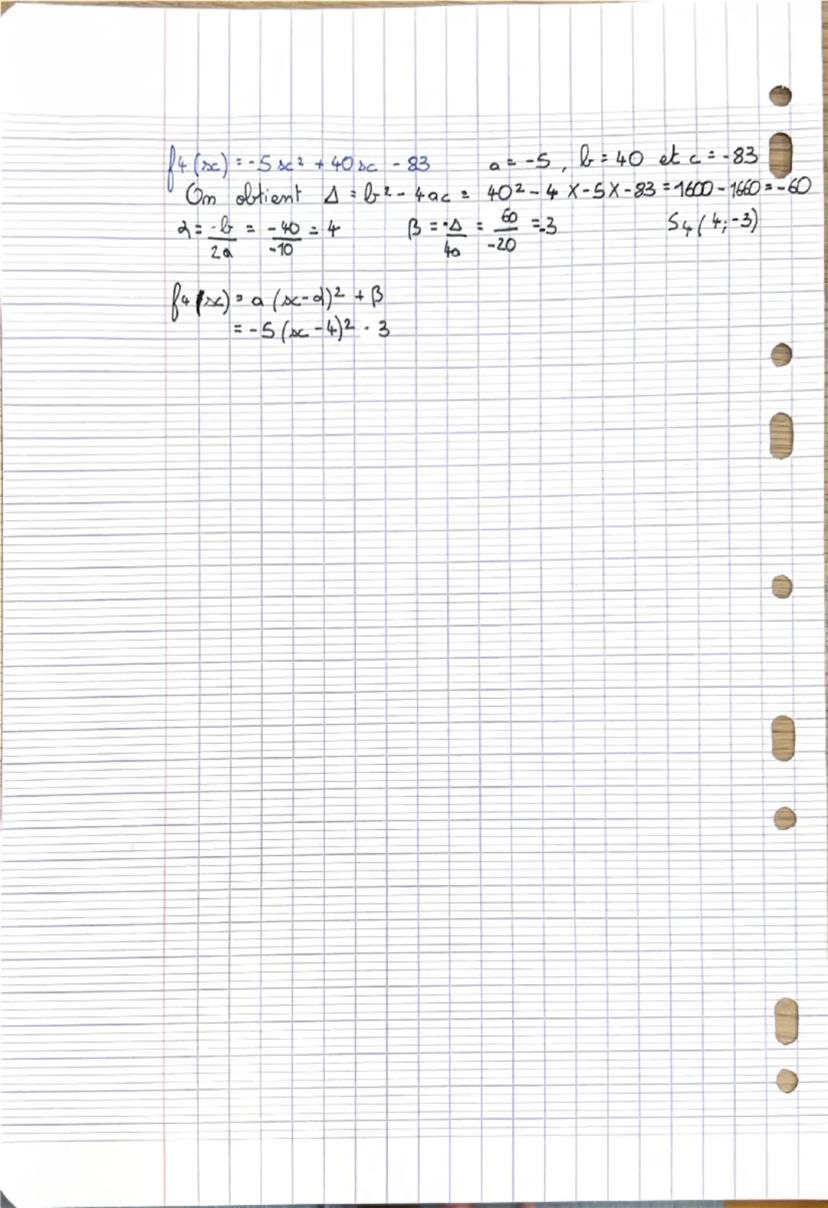 f₄(x) = -5x² + 40x - 83 a = -5, b = 40 et c = -83
On obtient Δ = b² - 4ac = 40² - 4 × -5 × -83 = 1600 - 1660 = -60
α = -b/2a = -40/-10 = 4 β = -Δ/4a = 60/-20 = -3 S₄(4;-3)
f₄(x) = a(x-α)² + β
= -5(x-4)² - 3